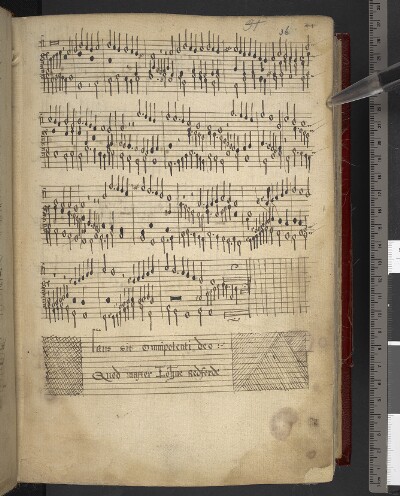 36
laus sit omnipotenti deo :-
Quod mayster Johne redforde